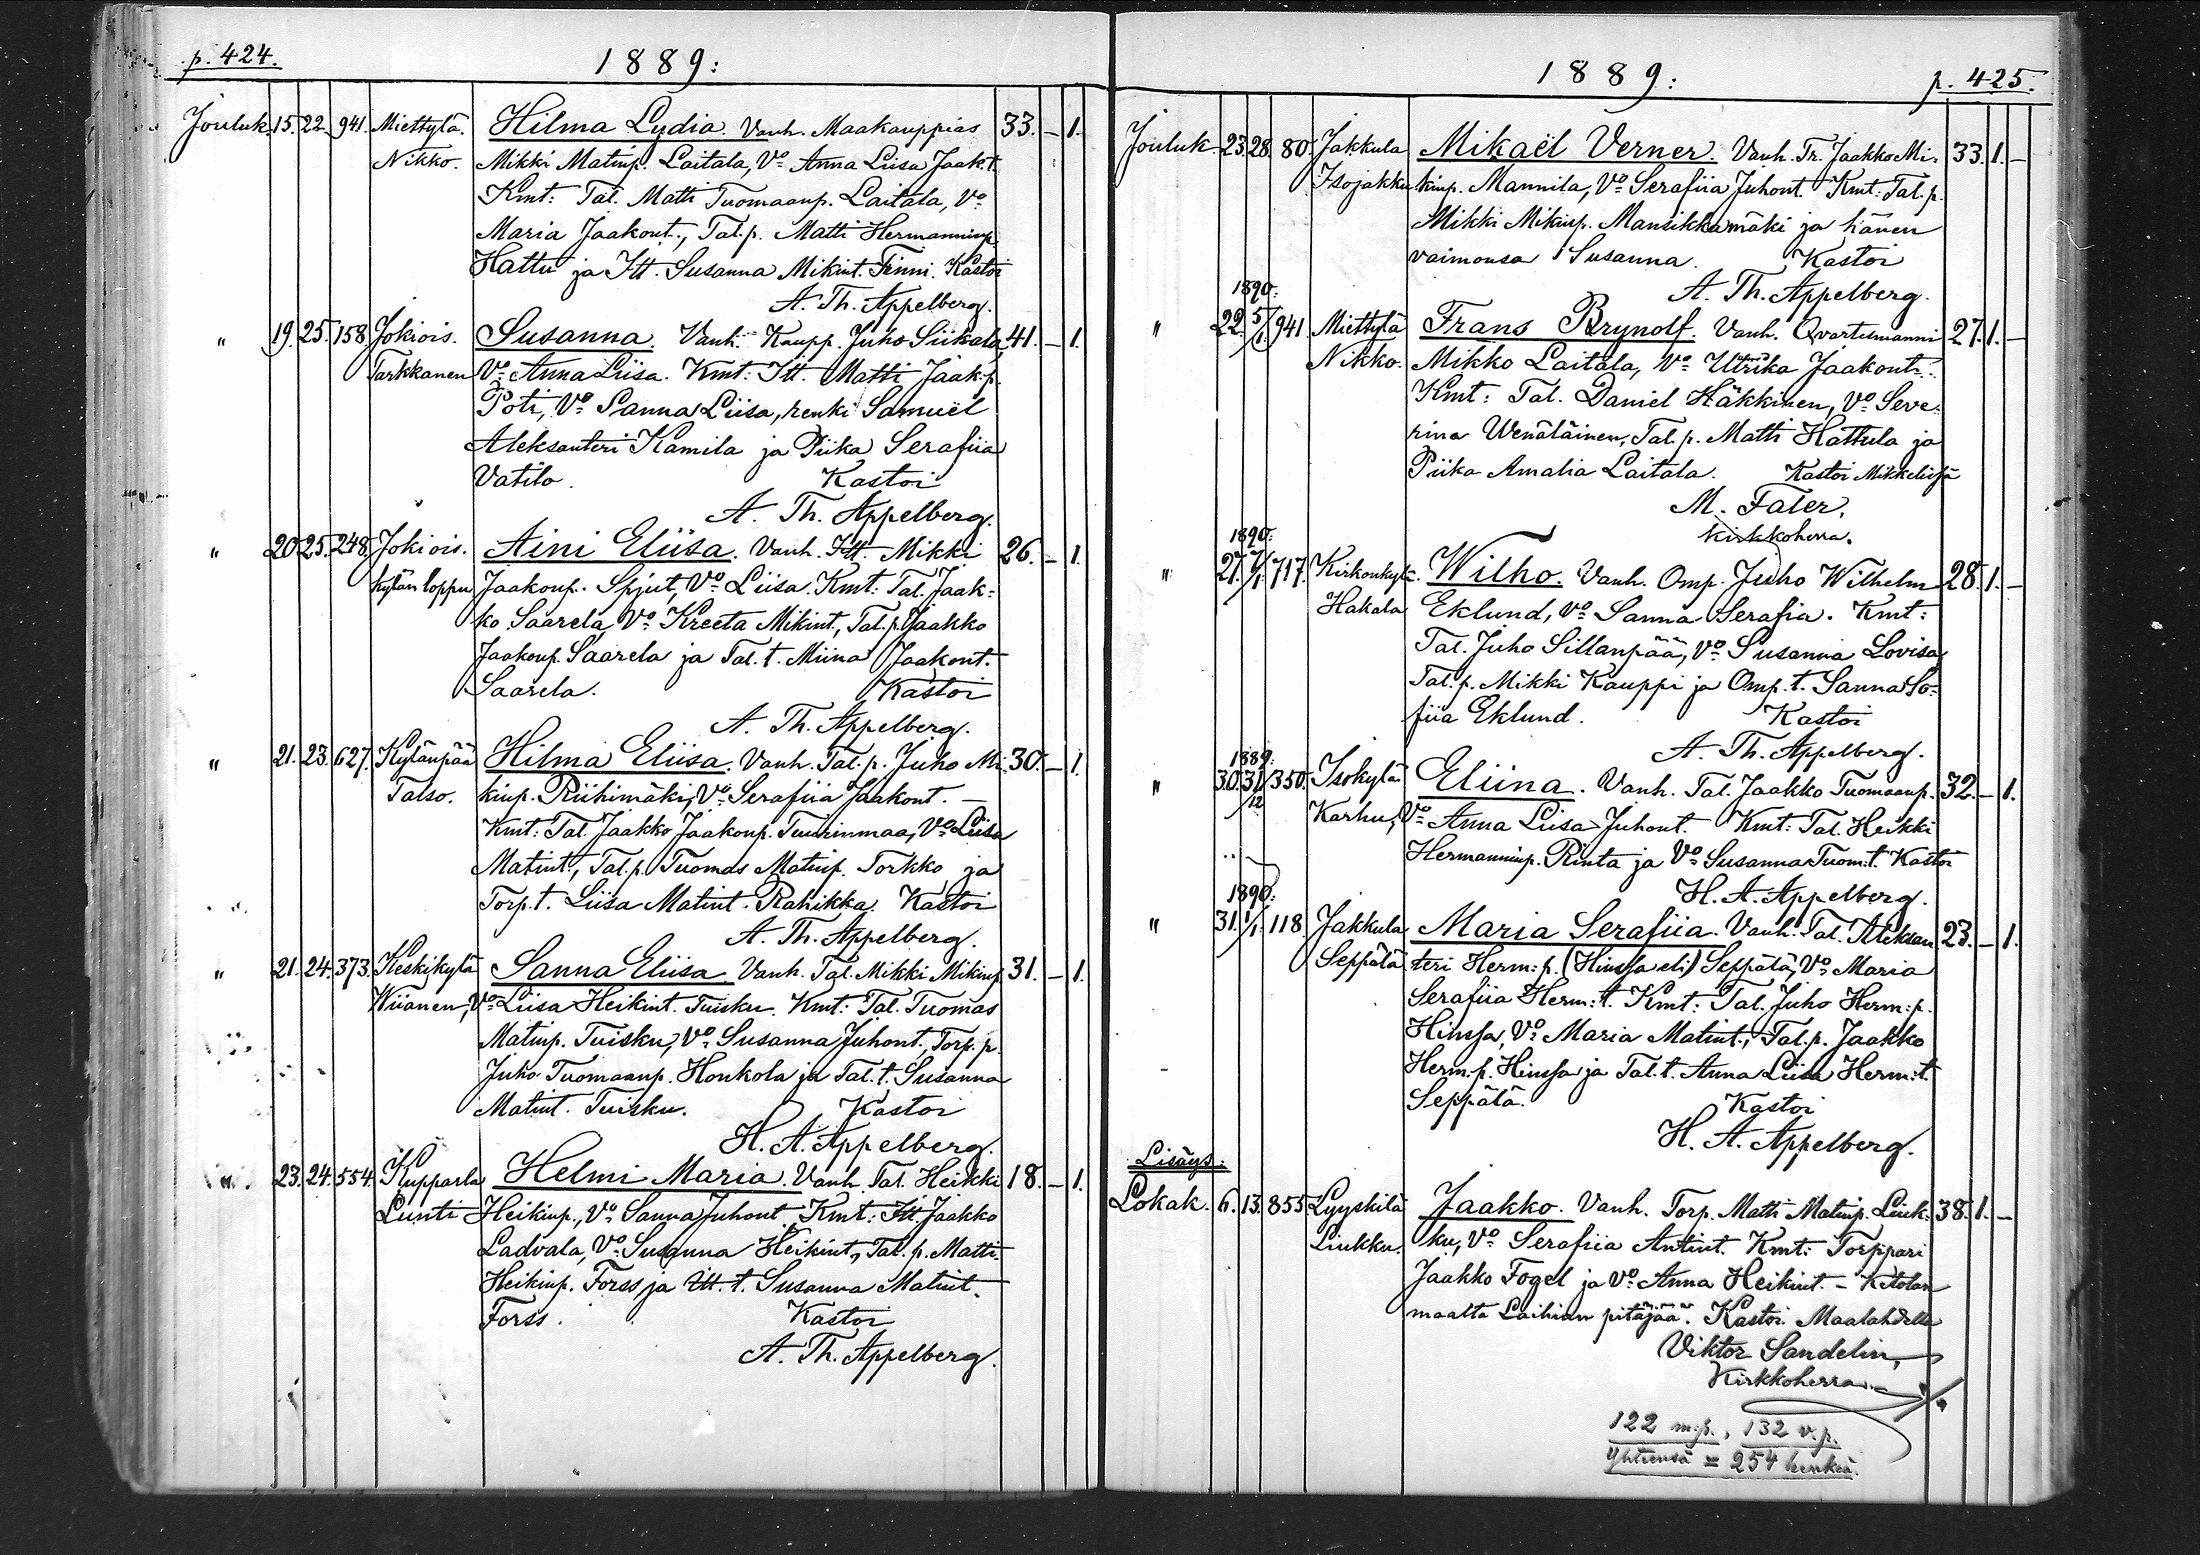 p. 424.
1889:
Jouluk. 15. 22. 941. Miettylä. Hilma Lydia. Vanh. Maakauppias 33. – 1.
Nikko. Mikki Matinp. Laitala, Vo. Anna Liisa Jaak.t.
Kmt: Tal. Matti Tuomaanp. Laitala, Vo.
Maria Jaakont., Tal.p. Matti Hermanninp.
Hattu ja Itt. Susanna Mikint. Finni. Kastoi
A. Th. Appelberg.
" 19. 25. 158. Jokiois. Susanna. Vanh. Kaupp. Juho Siikala, 41. – 1.
Tarkkanen Vo. Anna Liisa. Kmt: Itt. Matti Jaak:p.
Poti, Vo. Sanna Liisa, renki Samuel
Aleksanteri Kamila ja Piika Serafiia
Vatilo. Kastoi
A. Th. Appelberg.
" 20. 25. 248. Jokiois. Aini Eliisa. Vanh. Itt. Mikki 26. – 1.
kylän loppu Jaakonp. Spjut, Vo. Liisa. Kmt: Tal. Jaak-
ko Saarela, Vo. Kreeta Mikint., Tal.p. Jaakko
Jaakonp. Saarela ja Tal.t. Miina Jaakont.
Saarela. Kastoi
A. Th. Appelberg.
" 21. 23. 627. Kylänpää Hilma Eliisa. Vanh. Tal.p. Juho Mi- 30. – 1.
Talso. kinp. Riihimäki, Vo. Serafiia Jaakont. –
Kmt: Tal. Jaakko Jaakonp. Tuurinmaa, Vo. Liisa
Matint., Tal.p. Tuomas Matinp. Torkko ja
Torp.t. Liisa Matint. Rahikka. Kastoi
A. Th. Appelberg.
" 21. 24. 373. Keskikylä Sanna Eliisa. Vanh. Tal. Mikki Mikinp. 31. – 1.
Wiianen, Vo. Liisa Heikint. Tuisku. Kmt: Tal. Tuomas
Matinp. Tuisku, Vo. Susanna Juhont., Torp.p.
Juho Tuomaanp. Honkola ja Tal.t. Susanna
Matint. Tuisku. Kastoi
H. A. Appelberg.
" 23. 24. 554. Kupparla Helmi Maria. Vanh. Tal. Heikki 18. – 1.
Lunti Heikinp., Vo. Sanna Juhont. Kmt: Itt. Jaakko
Ladvala, Vo. Susanna Heikint., Tal.p. Matti
Heikinp. Forss ja Itt.t. Susanna Matint.
Forss. Kastoi
A. Th. Appelberg.
1889:
p. 425.
Jouluk. 23. 28. 80. Jakkula Mikaël Verner. Vanh. Tr. Jaakko Mi- 33. 1. –
Isojakku kinp. Mannila, Vo. Serafiia Juhont. Kmt: Tal.p.
Mikki Mikinp. Mansikkamäki ja hänen
vaimonsa Susanna. Kastoi
A. Th. Appelberg.
1890:
" 22. 5/1. 941 Miettylä Frans Brynolf. Vanh. Qvartesmanni 27. 1. –
Nikko. Mikko Laitala, Vo. Ulrika Jaakont.
Kmt: Tal. Daniel Häkkinen, Vo. Seve-
rina Wenäläinen, Tal.p. Matti Hattula ja
Piika Amalia Laitala. Kastoi Mikkelissä
M. Faler,
Kirkkoherra.
1890:
" 27. 7/1. 717. Kirkonkylä. Wilho. Vanh. Omp. Juho Wilhelm 28. 1. –
Hakala Eklund, Vo. Sanna Serafia. Kmt:
Tal. Juho Sillanpää, Vo. Susanna Lovisa,
Tal.p. Mikki Kauppi ja Omp.t. Sanna So-
fiia Eklund. Kastoi
A. Th. Appelberg.
1889:
" 30. 31/12 350. Isokylä Eliina. Vanh. Tal. Jaakko Tuomaanp. 32. – 1.
Karhu, Vo. Anna Liisa Juhont. Kmt: Tal. Heikki
Hermanninp. Rinta ja Vo. Susanna Tuom:t. Kastoi
H. A. Appelberg.
1890:
" 31. 1/1. 118. Jakkula Maria Serafiia. Vanh. Tal. Aleksan 23. – 1.
Seppälä teri Herm:p. (Hinssa eli) Seppälä, Vo. Maria
Serafiia Herm:t. Kmt: Tal. Juho Herm:p.
Hinssa, Vo. Maria Matint., Tal.p. Jaakko
Herm.p. Hinssa ja Tal.t. Anna Liisa Herm:t.
Seppälä. Kastoi
H. A. Appelberg.
Lisäys:
Lokak. 6. 13. 855 Lyyskilä Jaakko. Vanh. Torp. Matti Matinp. Liuk- 38. 1. –
Liukku. ku, Vo. Serafiia Antint. Kmt: Torppari
Jaakko Fogel ja Vo. Anna Heikint. – Ketolan
maalta Laihian pitäjää. Kastoi Maalahdella
Viktor Sandelin,
Kirkkoherra.
122 m.p., 132 v.p.
Yhteensä = 254 henkeä.